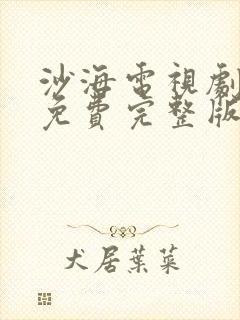 沙海電視劇
免費完整版
犬居葉菜